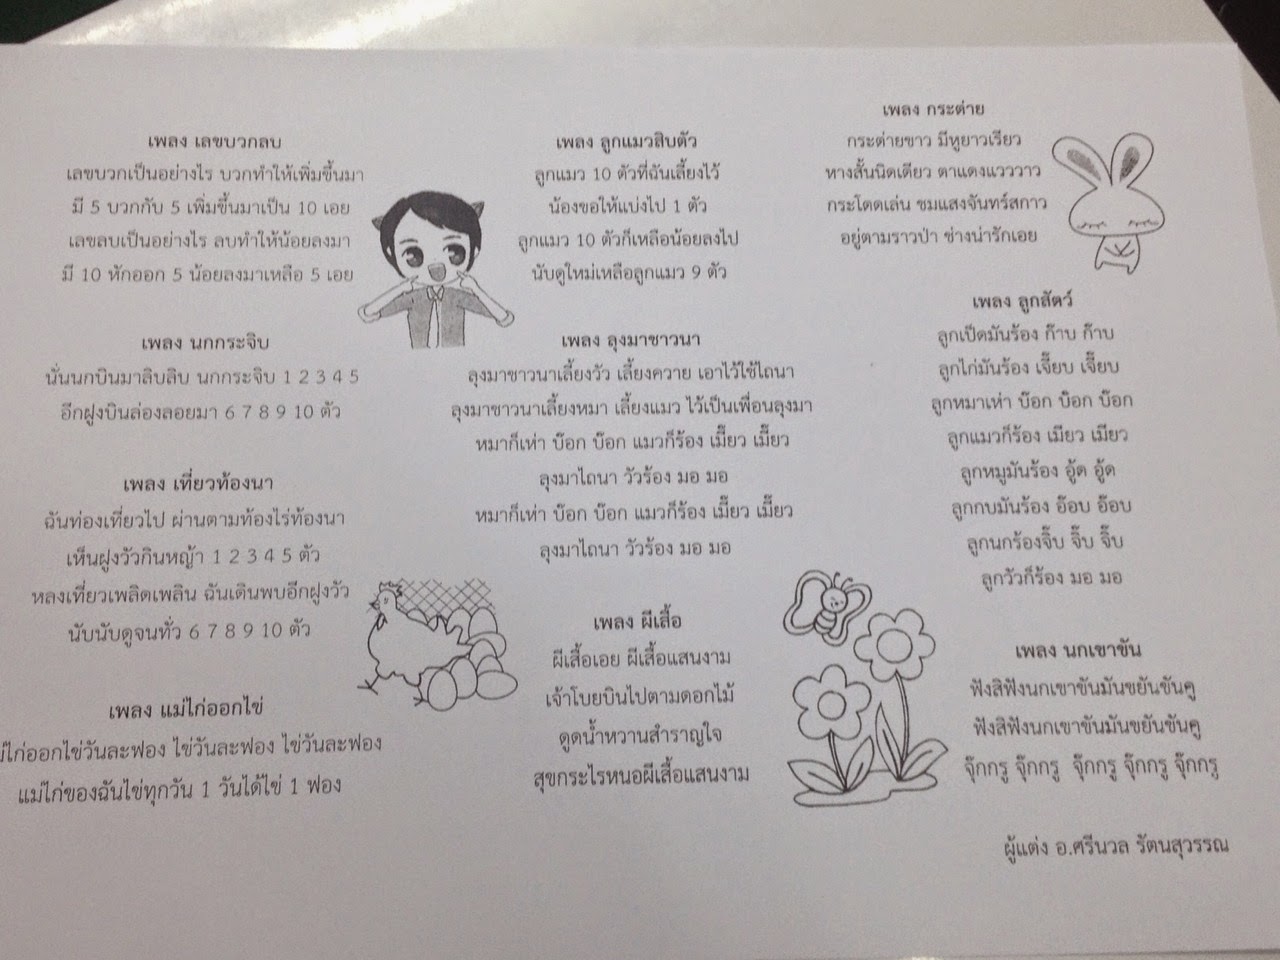 เพลง เลขบวกลบ
เลขบวกเป็นอย่างไร บวกทำให้เพิ่มขึ้นมา
มี 5 บวกกับ 5 เพิ่มขึ้นมาเป็น 10 เอย
เลขลบเป็นอย่างไร ลบทำให้น้อยลงมา
มี 10 หักออก 5 น้อยลงมาเหลือ 5 เอย
เพลง นกกระจิบ
นั่นนกบินมาลิบลิบ นกกระจิบ 1 2 3 4 5
อีกฝูงบินล่องลอยมา 6 7 8 9 10 ตัว
เพลง เที่ยวท้องนา
ฉันท่องเที่ยวไป ผ่านตามท้องไร่ท้องนา
เห็นฝูงวัวกินหญ้า 1 2 3 4 5 ตัว
หลงเที่ยวเพลิดเพลิน ฉันเดินพบอีกฝูงวัว
นับนับดูจนทั่ว 6 7 8 9 10 ตัว
เพลง แม่ไก่ออกไข่
ม่ไก่ออกไข่วันละฟอง ไข่วันละฟอง ไข่วันละฟอง
แม่ไก่ของฉันไข่ทุกวัน 1 วันได้ไข่ 1 ฟอง
เพลง ลูกแมวสิบตัว
ลูกแมว 10 ตัวที่ฉันเลี้ยงไว้
น้องขอให้แบ่งไป 1 ตัว
ลูกแมว 10 ตัวก็เหลือน้อยลงไป
นับดูใหม่เหลือลูกแมว 9 ตัว
เพลง ลุงมาชาวนา
ลุงมาชาวนาเลี้ยงวัว เลี้ยงควาย เอาไว้ใช้ไถนา
ลุงมาชาวนาเลี้ยงหมา เลี้ยงแมว ไว้เป็นเพื่อนลุงมา
หมาก็เห่า บ๊อก บ๊อก แมวก็ร้อง เมี๊ยว เมี๊ยว
ลุงมาไถนา วัวร้อง มอ มอ
หมาก็เห่า บ๊อก บ๊อก แมวก็ร้อง เมี๊ยว เมี๊ยว
ลุงมาไถนา วัวร้อง มอ มอ
เพลง ผีเสื้อ
ผีเสื้อเอย ผีเสื้อแสนงาม
เจ้าโบยบินไปตามดอกไม้
ดูดน้ำหวานสำราญใจ
สุขกระไรหนอผีเสื้อแสนงาม
เพลง กระต่าย
กระต่ายขาว มีหูยาวเรียว
หางสั้นนิดเดียว ตาแดงแวววาว
กระโดดเล่น ชมแสงจันทร์สกาว
อยู่ตามราวป่า ช่างน่ารักเอย
เพลง ลูกสัตว์
ลูกเป็ดมันร้อง ก๊าบ ก๊าบ
ลูกไก่มันร้อง เจี๊ยบ เจี๊ยบ
ลูกหมาเห่า บ๊อก บ๊อก บ๊อก
ลูกแมวก็ร้อง เมียว เมียว
ลูกหมูมันร้อง อู้ด อู้ด
ลูกกบมันร้อง อ๊อบ อ๊อบ
ลูกนกร้องจิ๊บ จิ๊บ จิ๊บ
ลูกวัวก็ร้อง มอ มอ
เพลง นกเขาขัน
ฟังสิฟังนกเขาขันมันขยันขันคู
ฟังสิฟังนกเขาขันมันขยันขันคู
จุ๊กกรู จุ๊กกรู จุ๊กกรู จุ๊กกรู จุ๊กกรู
ผู้แต่ง อ.ศรีนวล รัตนสุวรรณ